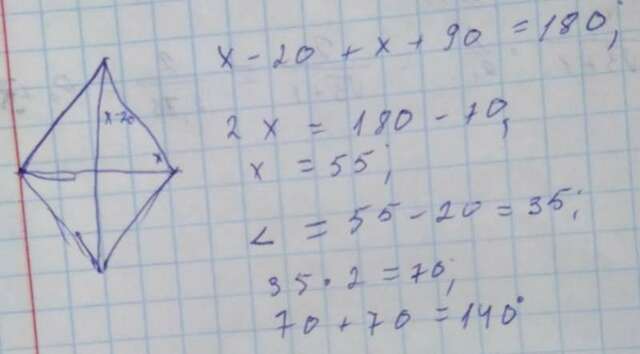 x - 20 + x + 90 = 180;
x - 20
x
2x = 180 - 70;
x = 55;
∠ = 55 - 20 = 35;
35 · 2 = 70;
70 + 70 = 140°